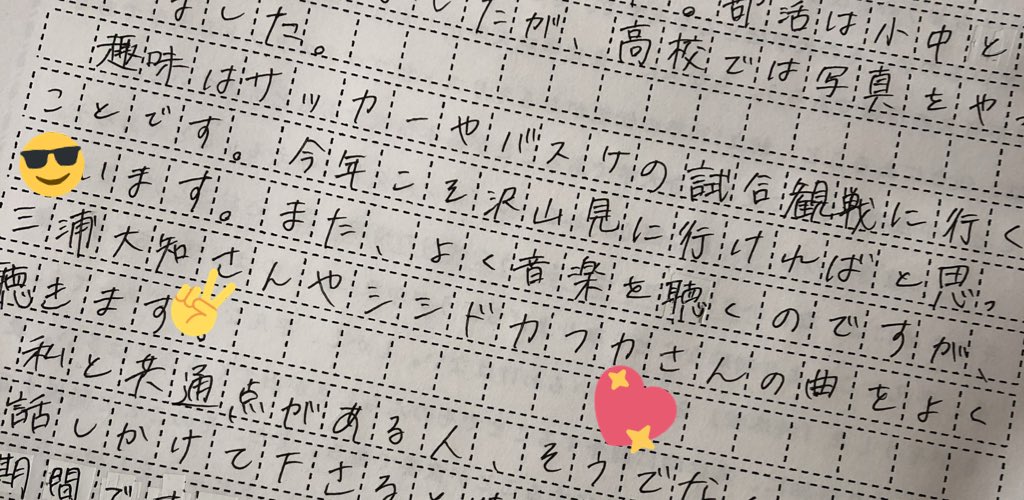 。部活は小中と
したが、高校では写真をやっ
ました。
趣味はサッカーやバスケの試合観戦に行く
ことです。今年こそ沢山見に行ければと思っ
います。また、よく音楽を聴くのですが、
三浦大知さんやシシドカフカさんの曲をよく
聴きます。
私と共通点がある人、そうでな
話しかけて下さると
期間です